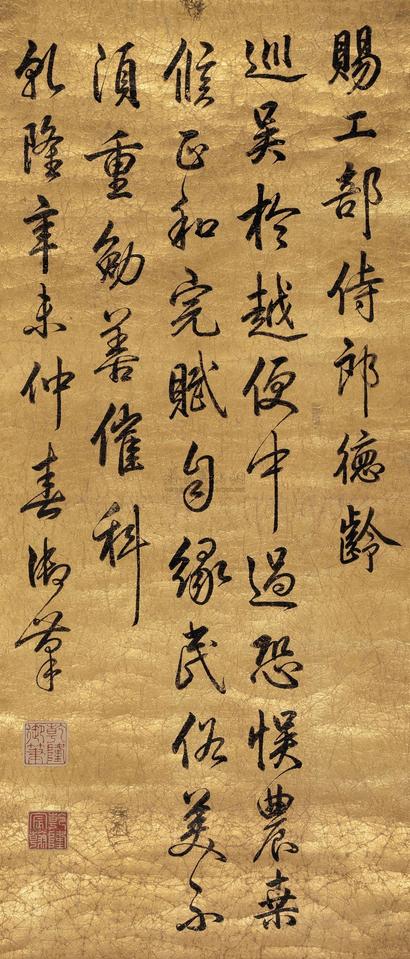 賜工部侍郎德齡
巡吳於越便中過恐悞農桒
候正和完賦自緣民俗美不
須重勉善催科
乾隆辛未仲春御筆
乾隆御筆
乾隆宸翰